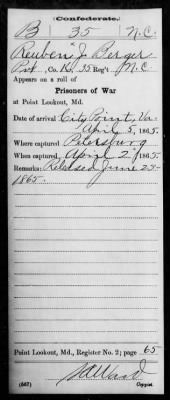 Confederate.
B 35 N.C.
Reuben J. Berger
Pvt, Co. K, 35 Reg't N.C.
Appears on a roll of
Prisoners of War
at Point Lookout, Md.
Date of arrival City Point, Va.
April 5, 1865.
Where captured Petersburg
When captured April 2, 1865.
Remarks: Released June 23-
1865.
Point Lookout, Md., Register No. 2; page 65
(667) Copyist.